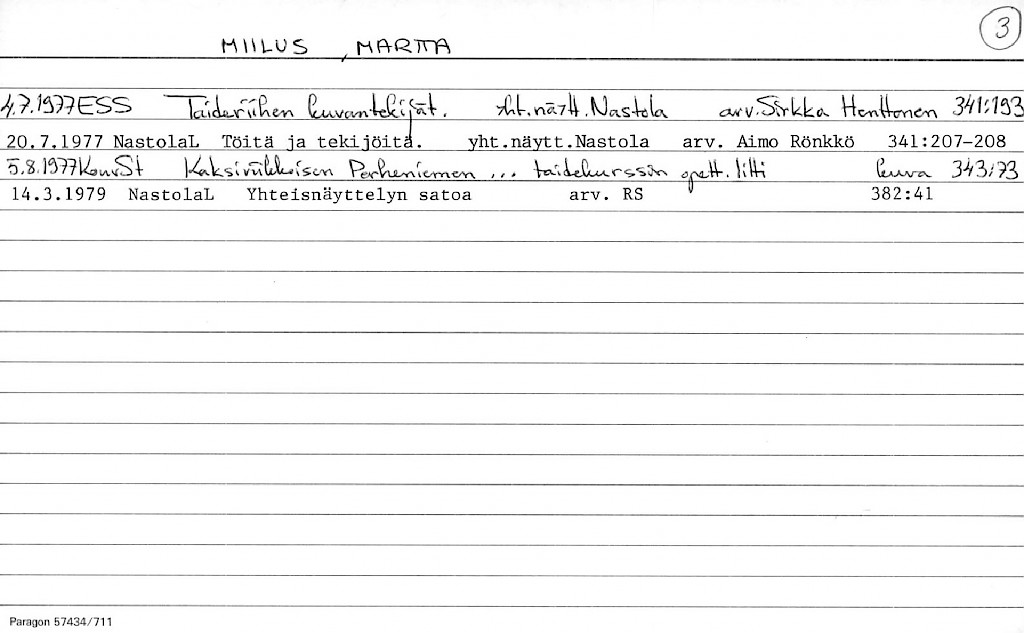 3
MIILUS, MARTTA
4.7.1977 ESS Taideriihen kuvantekijät. yht.näytt. Nastola arv. Sirkka Henttonen 341:193
20.7.1977 NastolaL Töitä ja tekijöitä. yht.näytt.Nastola arv. Aimo Rönkkö 341:207-208
5.8.1977 KouvSt Kaksiviikkoisen Perheniemen ... taidekurssin opett. Iitti kuva 343:73
14.3.1979 NastolaL Yhteisnäyttelyn satoa arv. RS 382:41
Paragon 57434/711